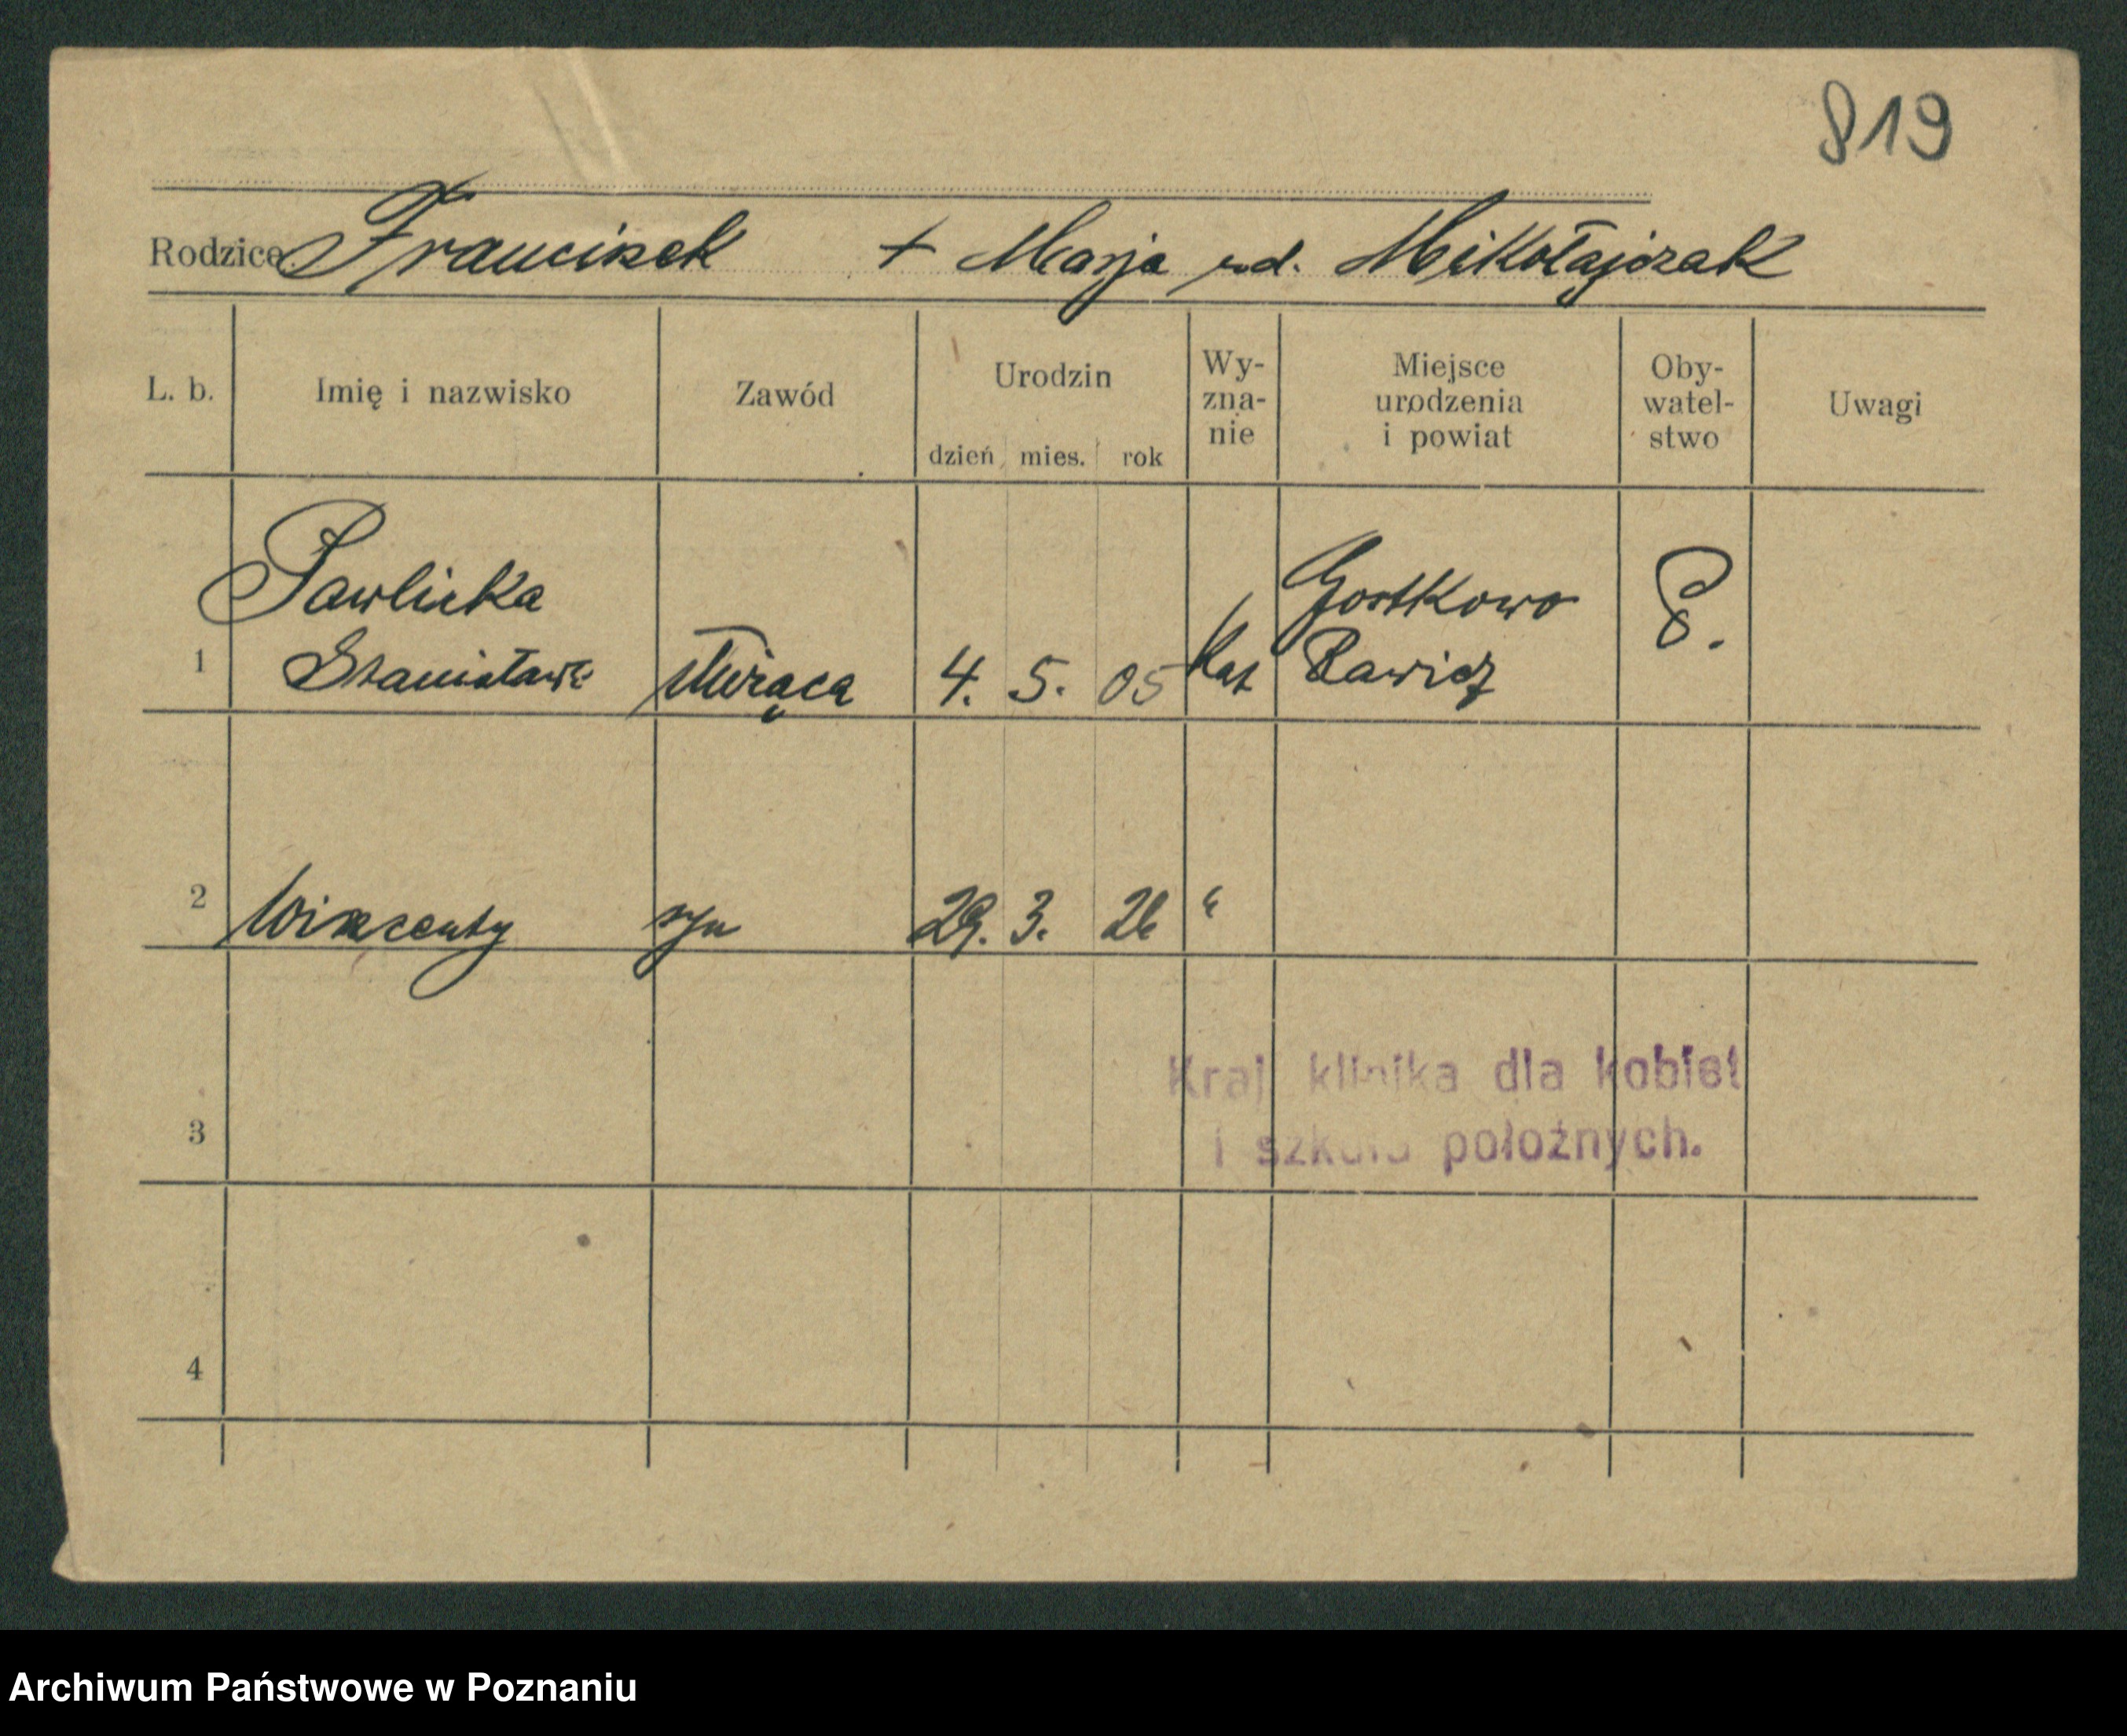 819
Rodzice Franciszek + Marja ud. Mikołajczak
L. b. Imię i nazwisko Zawód Urodzin dzień mies. rok Wy-zna-nie Miejsce urodzenia i powiat Oby-watel-stwo Uwagi
Pawlicka Gostkowo
1 Stanisława służąca 4. 5. 05 kat Rawicz
2 Winzcenty syn 29. 3. 26 "
Kraj. klinika dla kobiet
3 i szkoła położnych.
4
Archiwum Państwowe w Poznaniu